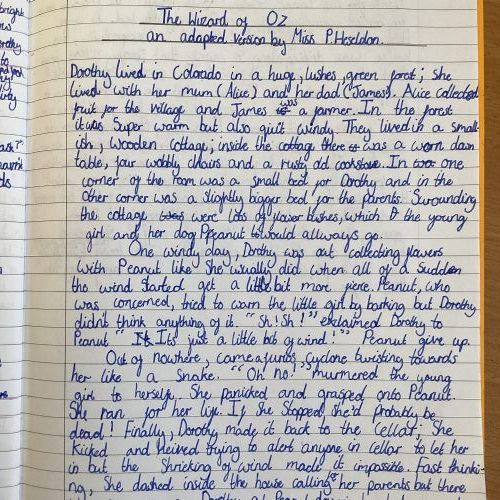 The Wizard of Oz
an adapted version by Miss P.Heseldon.
Dorothy lived in Colorado in a huge, lushes, green forest; she
lived with her mum (Alice) and her dad (James). Alice collected
fruit for the village and James was a farmer. In the forest
it was super warm but also quit windy. They lived in a small-
ish, wooden cottage; inside the cottage there was a worn down
table, four wobbly chairs and a rusty old cookstove. In one
corner of the room was a small bed for Dorothy and in the
other corner was a slightly bigger bed for the parents. Surounding
the cottage were lots of flower bushes, which the young
girl and her dog Peanut would allways go.
One windy day, Dorthy was out collecting flowers
with Peanut like she usually did when all of a sudden
the wind started get a little bit more fierce. Peanut, who
was concerned, tried to warn the little girl by barking but Dorothy
didn't think anything of it. "Sh! Sh!" exclaimed Dorothy to
Peanut "It's just a little bit of wind!" Peanut give up.
Out of nowhere, came a cyclone twisting towards
her like a snake. "Oh no!" murmered the young
girl to herself. She panicked and grasped onto Peanut.
She ran for her life. If she stopped, she'd probably be
dead! Finally, Dorothy made it back to the cellar; she
kicked and trying to alert anyone in cellar to let her
in but the shricking of wind made it impossible. Fast thinki-
ng, she dashed inside the house calling her parents but there
Dorothy
bright
to